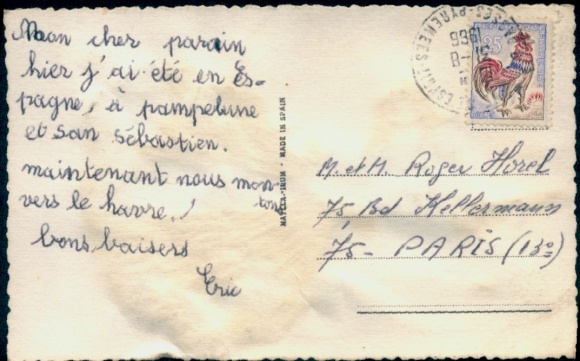 Mon cher parain
hier j'ai été en Es-
pagne, à pampelune
et san sébastien.
maintenant nous mon-
tons
vers le havre.
bons baisers
Eric
MADE IN SPAIN
M. et M. Roger Horel
75, Bd Kellermann
75 - PARIS (13e)
1966